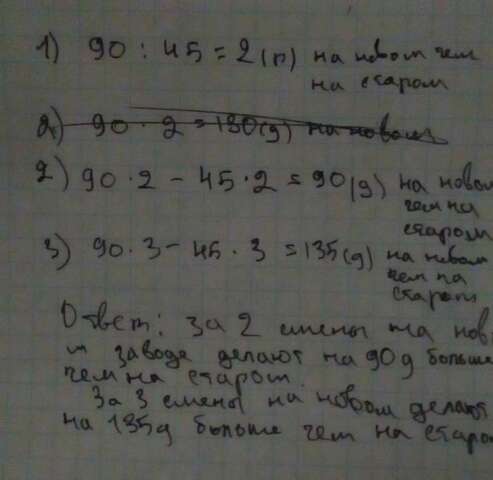 1) 90 : 45 = 2 (п) на новом чем
на старом
2) 90 · 2 = 180 (д) на новом
2) 90 · 2 - 45 · 2 = 90 (д) на новом
чем на
старом
3) 90 · 3 - 45 · 3 = 135 (д) на новом
чем на
старом
Ответ: за 2 смены на нов
м заводе делают на 90 д больше
чем на старом.
За 3 смены на новом делают
на 135 д больше чем на старом